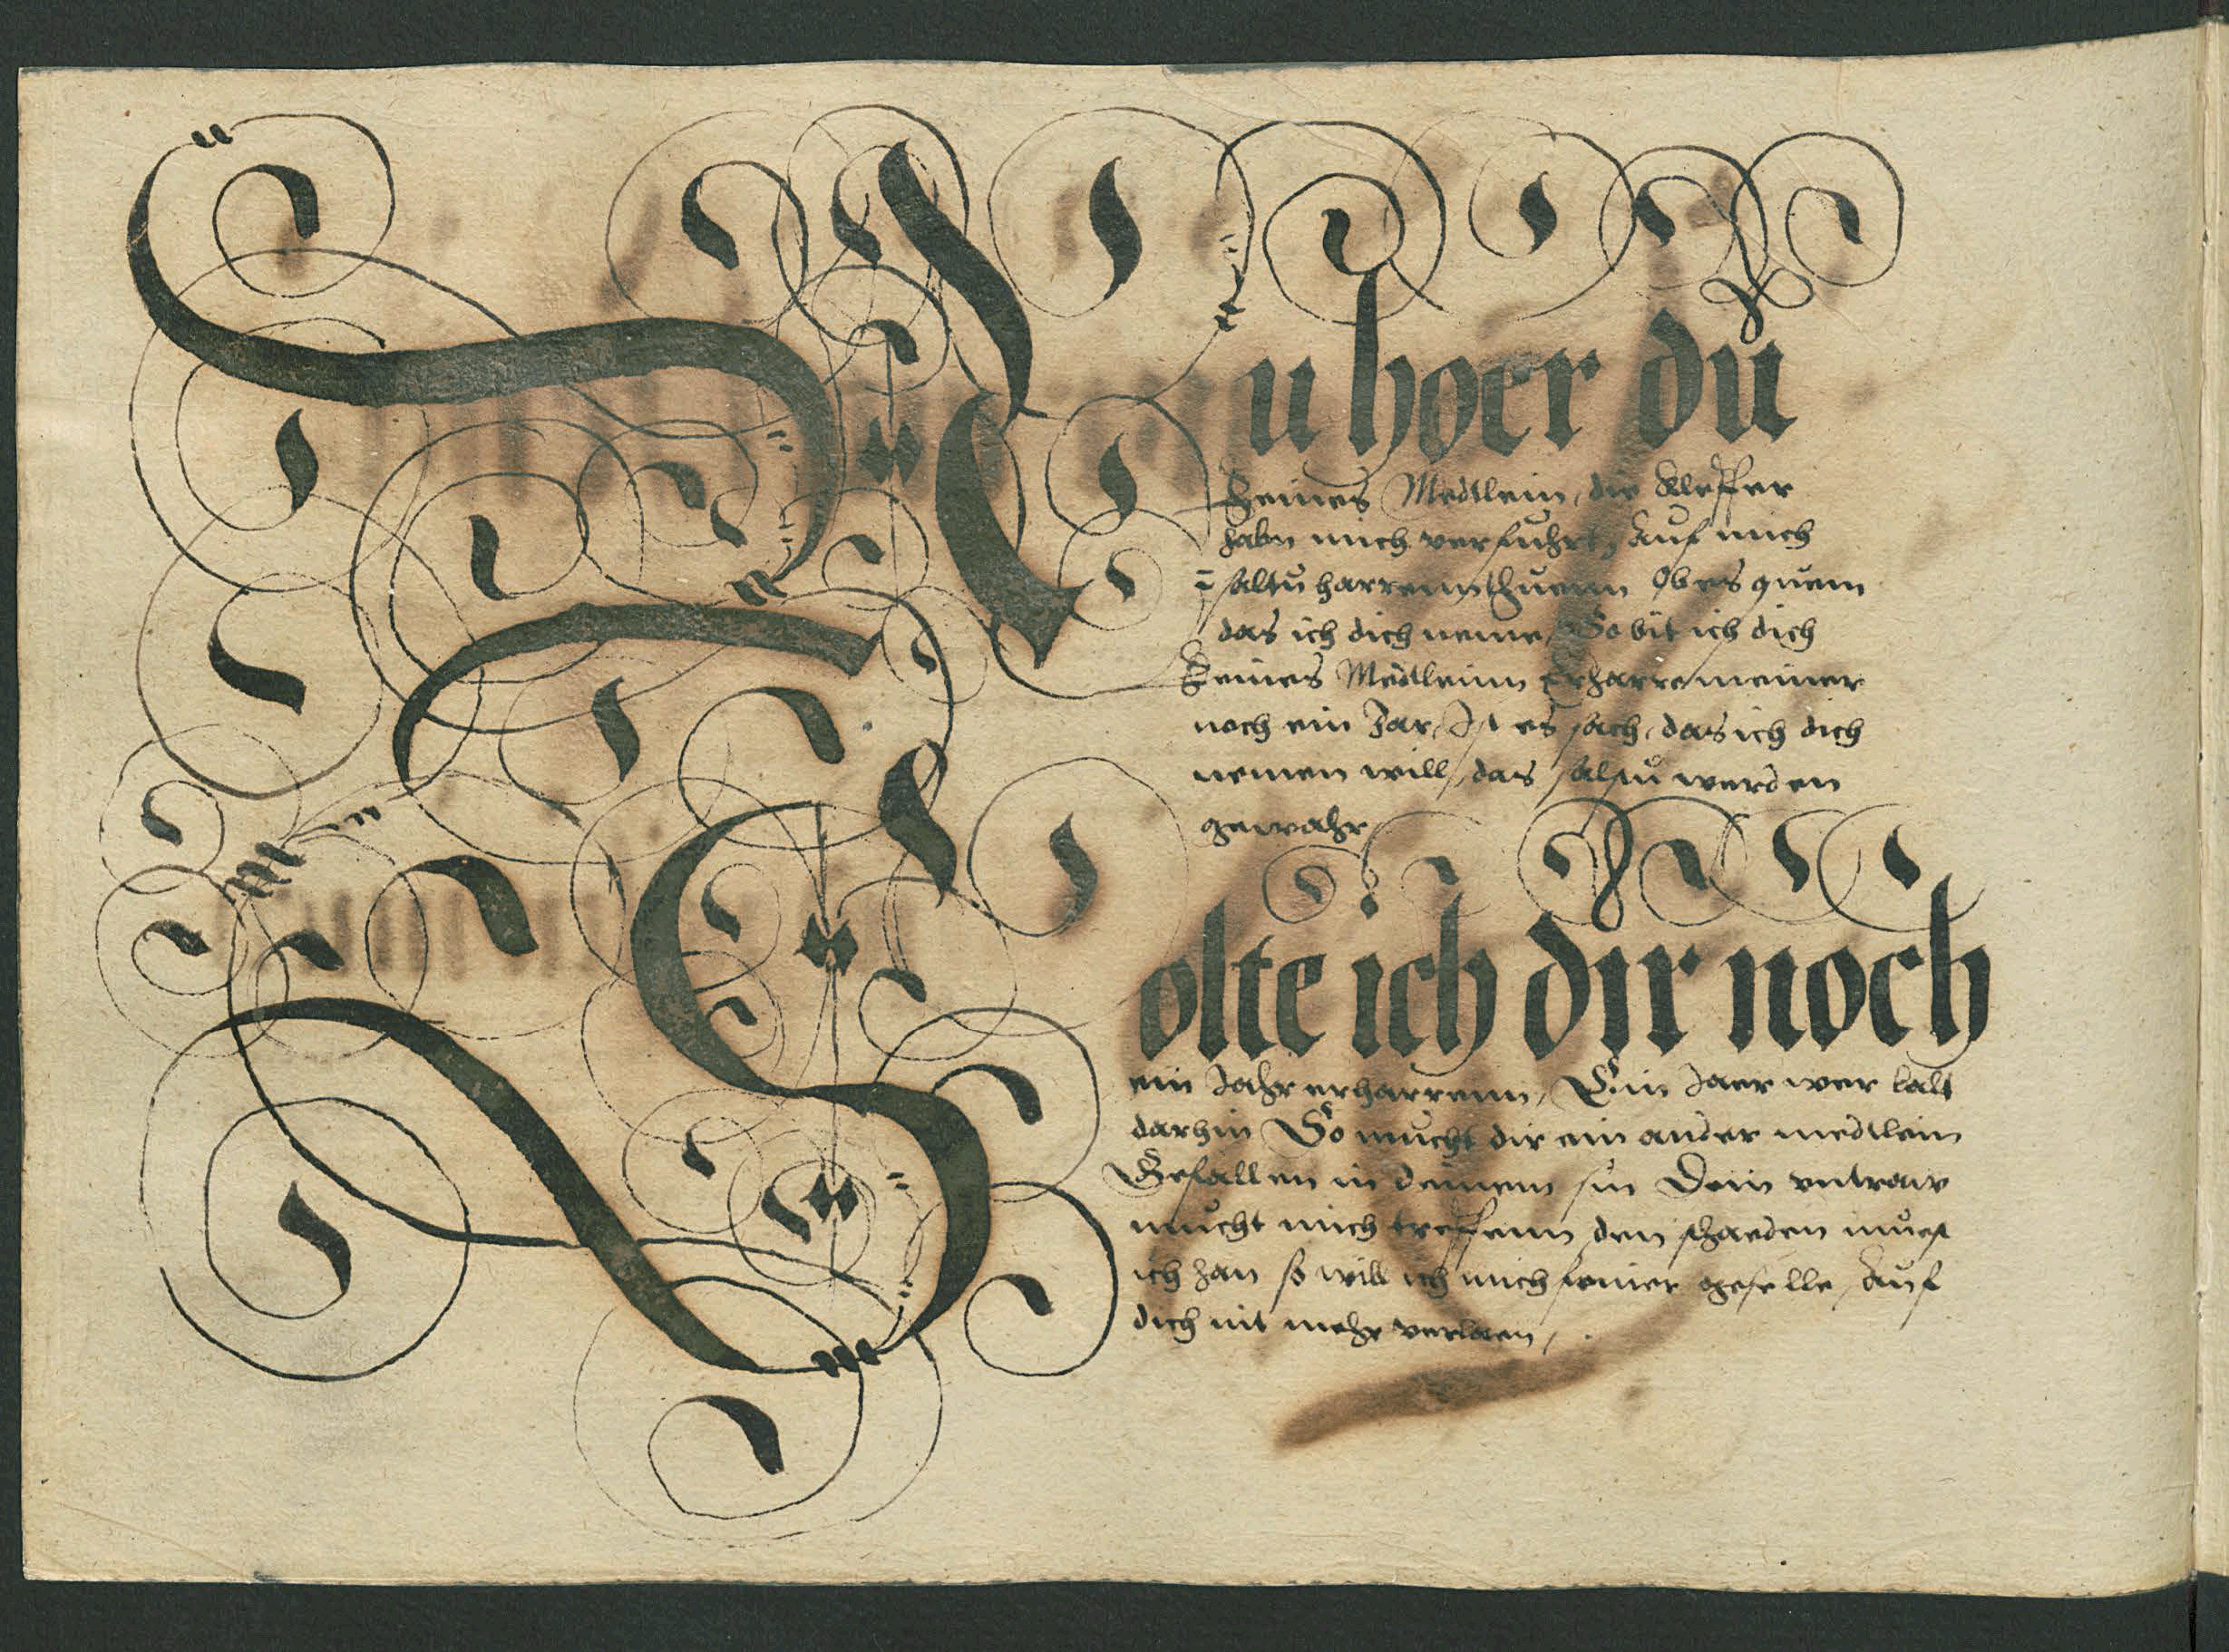 Nu hoer du
feines Medtlein, die Kleffer
habn mich verfuhrt, Auf mich
saltu harrenn thuenn Ob es quem
das ich dich neme, So bit ich dich
Feines Medtleinn Erharre meiner
noch ein Jar, Ist es sach, das ich dich
nemen will, das salstu werden
gewahr
Solte ich dir noch
ein Jahr erharrenn, Ein Jaer wer balt
darhin So mucht dir ein ander medtlein
Gefallen in deinem sin Dein untraw
mucht mich treffenn den schaeden mues
ich han so will ich mich feiner geselle, Auf
dich nit mehr verlaen,